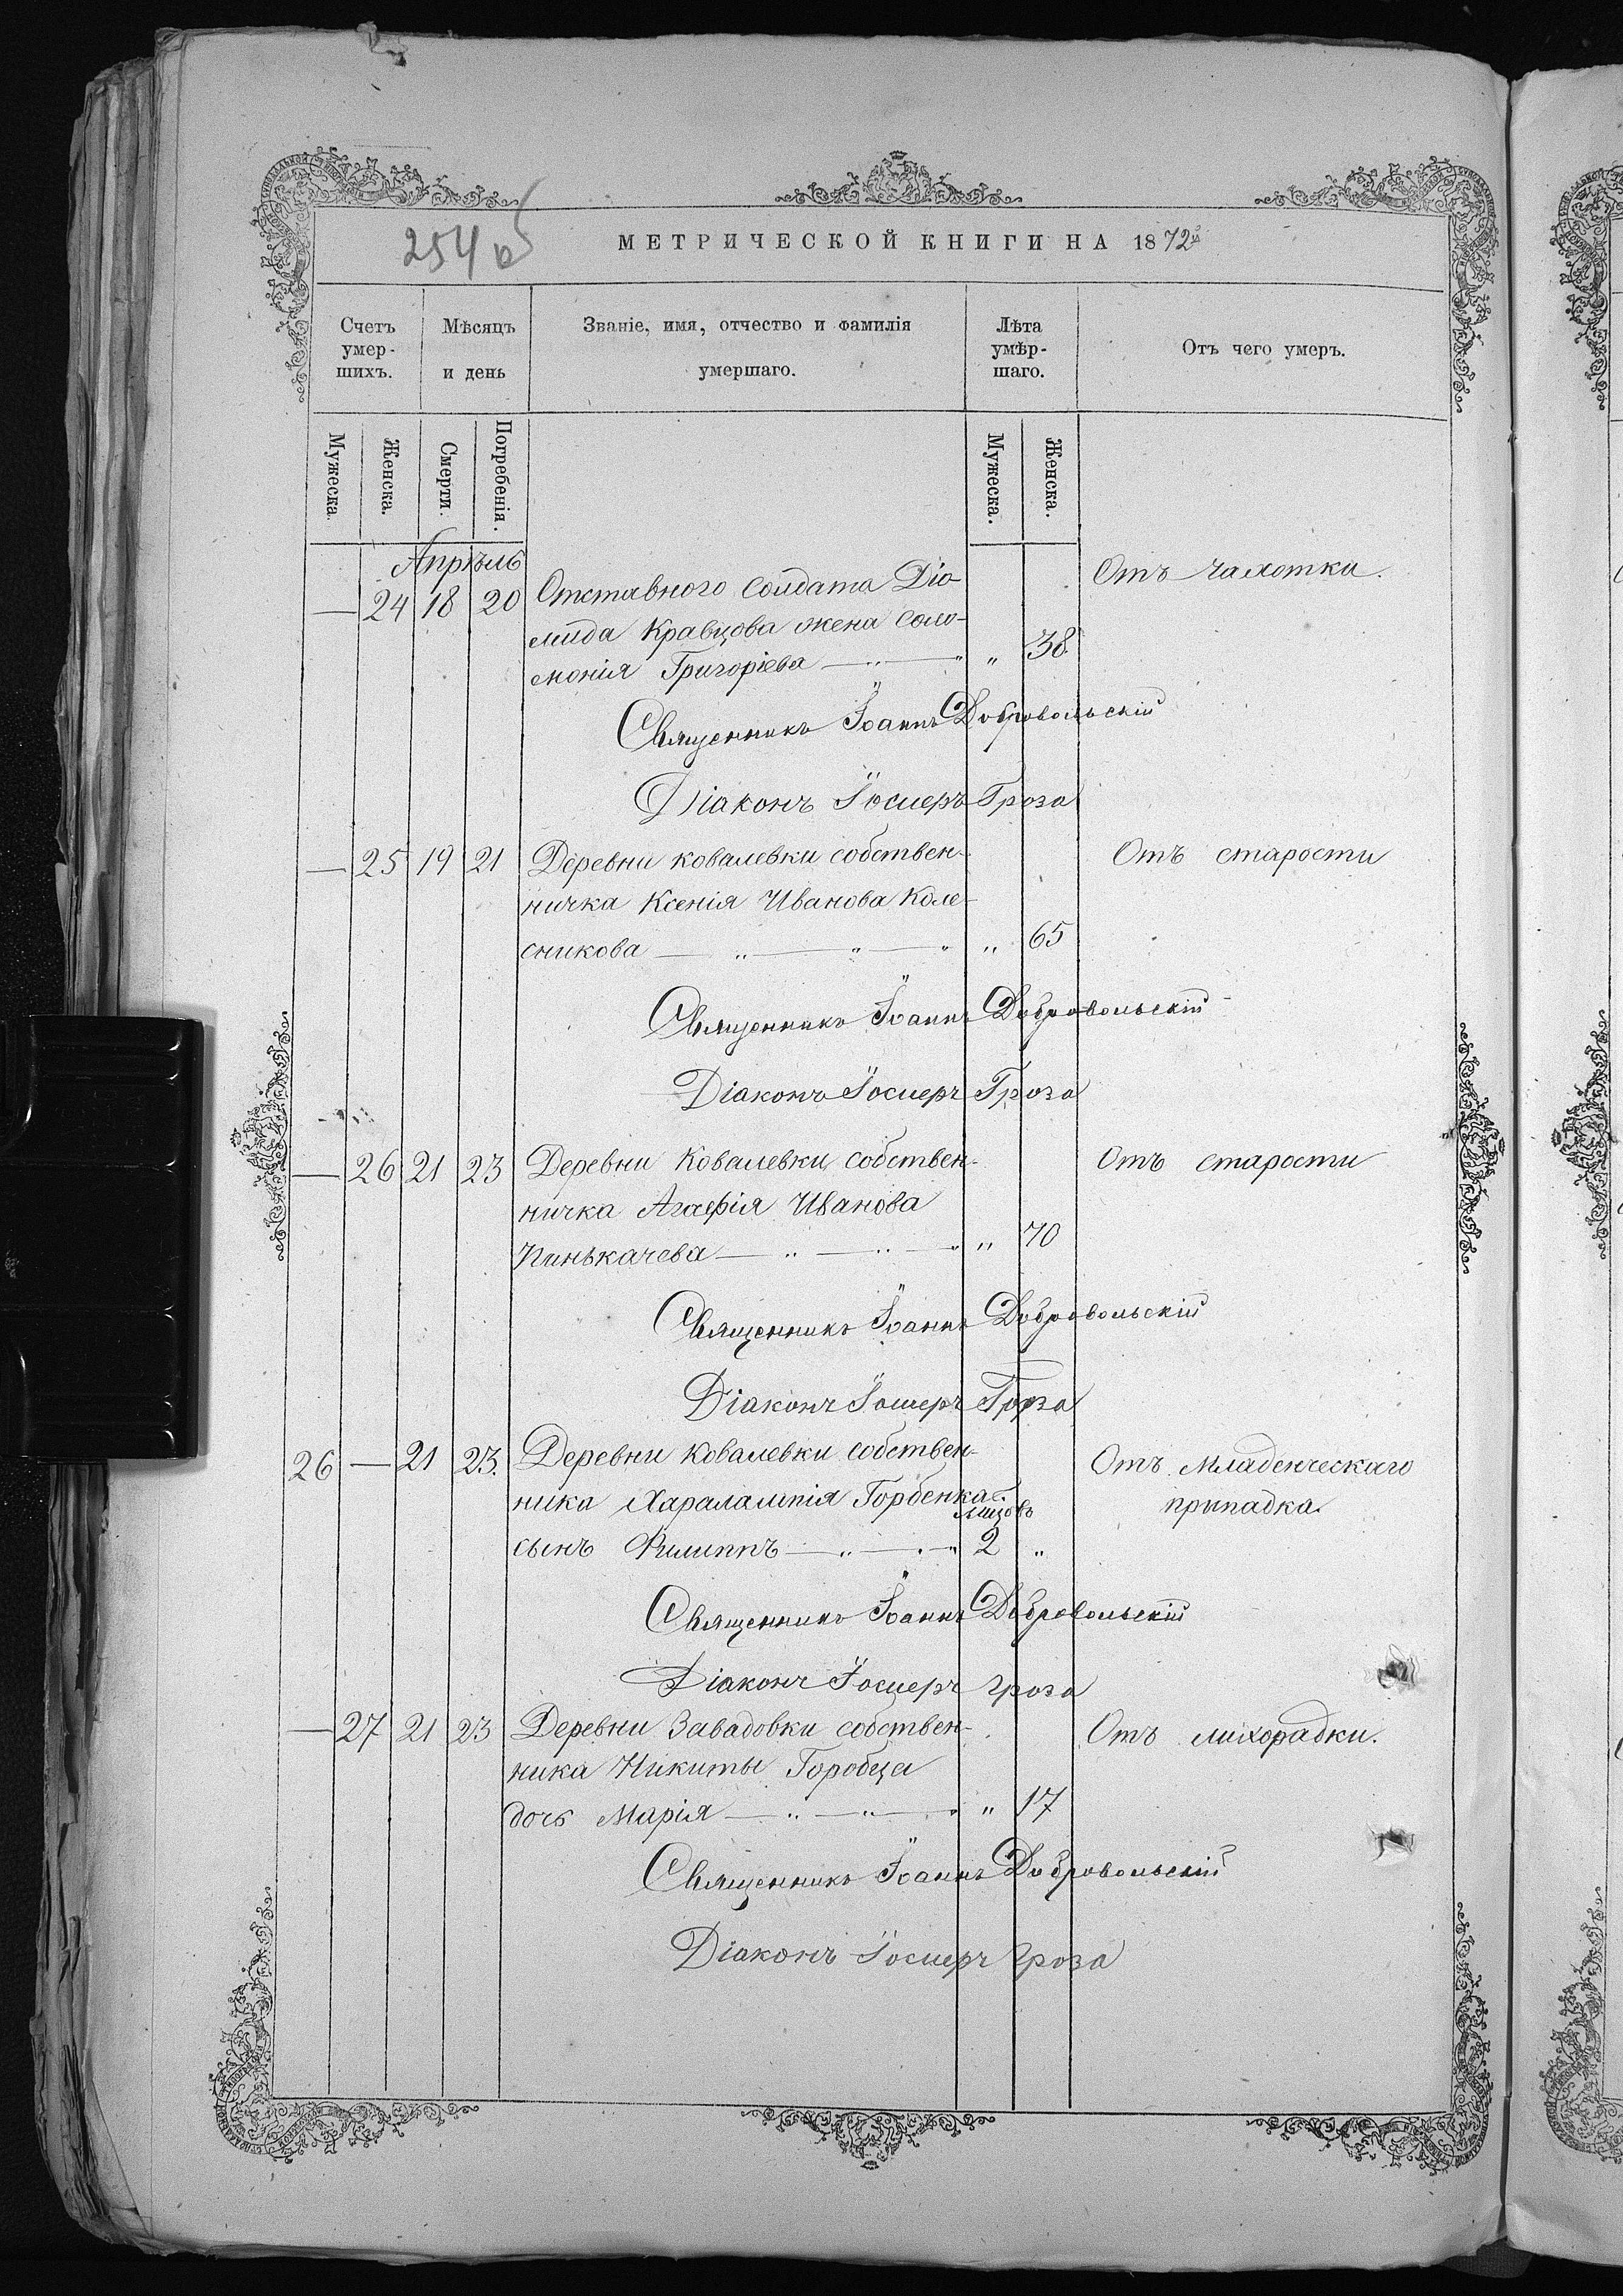 254 об
МЕТРИЧЕСКОЙ КНИГИ НА 1872й
Счетъ умер- шихъ.
Мѣсяцъ и день
Званіе, имя, отчество и фамилія умершаго.
Лѣта умѣр- шаго.
Отъ чего умеръ.
Мужеска. Женска. Смерти. Погребенія. Мужеска. Женска.
Апрѣль
— 24 18 20 Отставного солдата Діо- Отъ чахотки.
мида Кравцова жена Соло-
монія Григоріева — „ — „ „ 38
Священникъ Іоаннъ Добровольскій
Діаконъ Гроза
— 25 19 21 Деревни Ковалевки собствен- Отъ старости
ничка Ксенія Иванова Коле-
сникова — „ — „ — „ „ 65
Священникъ Іоаннъ Добровольскій
Діаконъ Гроза
— 26 21 23 Деревни Ковалевки собствен- Отъ старости
ничка Агафія Иванова
Пинькачева — „ — „ — „ „ 70
Священникъ Іоаннъ Добровольскій
Діаконъ Гроза
26 — 21 23. Деревни Ковалевки собствен- Отъ младенческаго
ника Харалампія Горбенка мцовъ припадка.
сынъ Филиппъ — „ — „ 2 „
Священникъ Іоаннъ Добровольскій
Діаконъ Гроза
— 27 21 23 Деревни Завадовки собствен- Отъ лихорадки.
ника Никиты Горобца
дочь Марія — „ — „ — „ „ 17
Священникъ Іоаннъ Добровольскій
Діаконъ Гроза